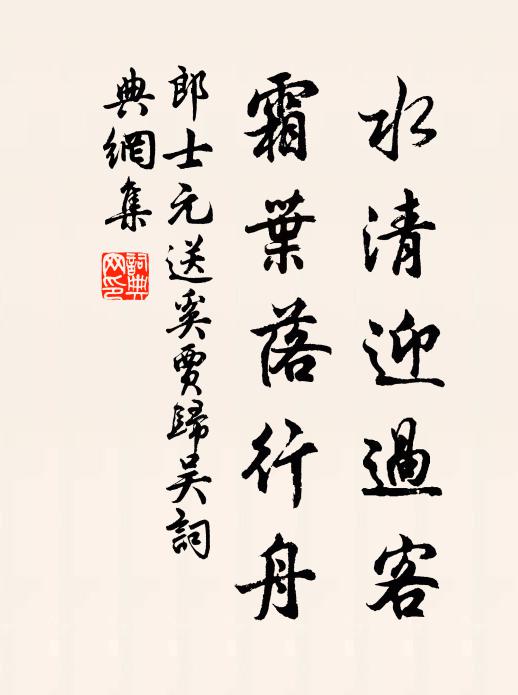 水清迎過客
霜葉落行舟
郎士元送奚賈歸吳詞
典網集
詞典網印